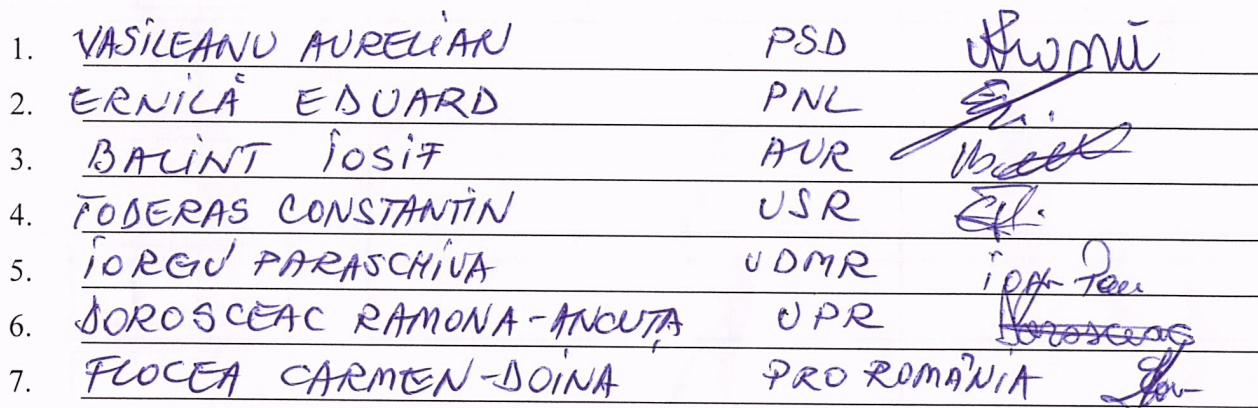 1. VASILEANU AURELIAN PSD
2. ERNILĂ EDUARD PNL
3. BALINT IOSIF AUR
4. TODERAS CONSTANTIN USR
5. IORGU PARASCHIVA UDMR
6. DOROSCEAC RAMONA-ANCUȚA UPR Dorosceac
7. FLOCEA CARMEN-DOINA PRO ROMÂNIA